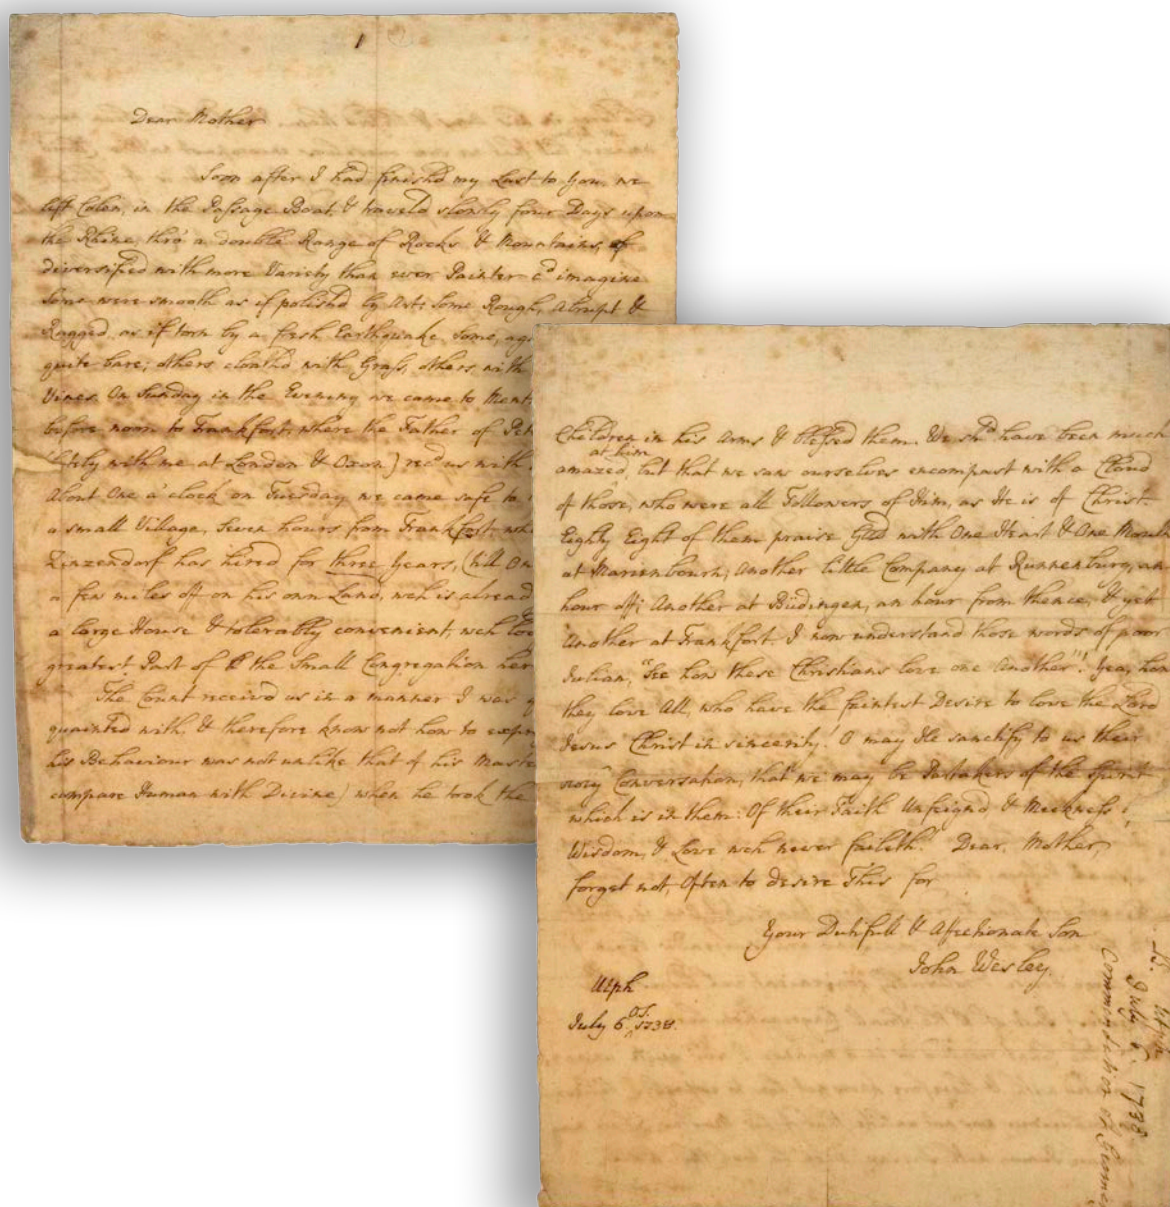 Dear Mother
Soon after I had finishd my Last to you, we
left Colen, in the Passage Boat, & traveld slowly four Days upon
the Rhine, thro' a double Range of Rocks & Mountains, of
diversified with more Variety than ever Painter cd imagine
Some were smooth as if polishd by Art; Some Rough, Abrupt &
Ragged, as if torn by a fresh Earthquake. Some, aga
quite bare; others cloathd with Grass, others with
Vines. On Sunday in the Evening we came to Mentz
before noon to Frankfort, where the Father of Pet
(lately with me at London & Oxon) recd us with
About One a' clock on Tuesday we came safe to
a small Village, Seven hours from Frankfort, wh
Zinzendorf has hired for three Years, (till On
a few miles off on his own Land, wch is alread
a large House & tolerably convenient, wch
greatest Part of the Small Congregation her
The Count receivd us in a manner I was
quainted with, & therefore know not how to expr
his Behaviour was not unlike that of his Maste
compare Human with Divine) when he took the
Children in his Arms & blessed them. We shd have been much
at him
amazed, but that we saw ourselves encompast with a Cloud
of those, who were all Followers of Him, as He is of Christ.
Eighty Eight of them praise God with One Heart & One Mouth
at Marienbourn; Another little Company at Runnenburg, an
hour off; Another at Büdingen, an hour from thence, & yet
Another at Frankfort. I now understand those words of poor
Julian, "See how these Christians love one Another"! Yea, how
they love All, who have the faintest Desire to love the Lord
Jesus Christ in sincerity! O may He sanctify to us their
Conversation, that we may be Partakers of the Spirit
which is in them: Of their Faith Unfeignd, & Meekness,
Wisdom, & Love wch never faileth. Dear Mother,
forget not, Often to desire This for
Your Dutifull & Afectionate Son
John Wesley.
Utph
July 6, O.S. 1738.
Utph
July 6. 1738
Commendation of